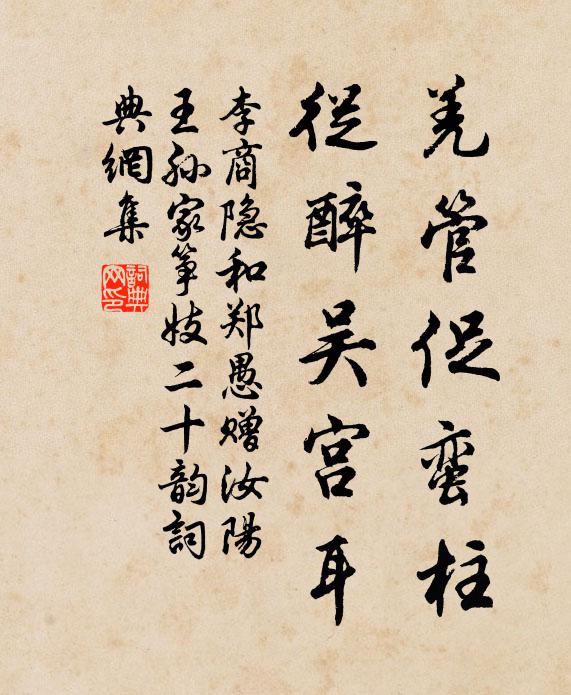 羌管促蛮柱
从醉吴宫耳
李商隐和郑愚赠汝陽
王孙家筝妓二十韵詞
典網集
詞典网印